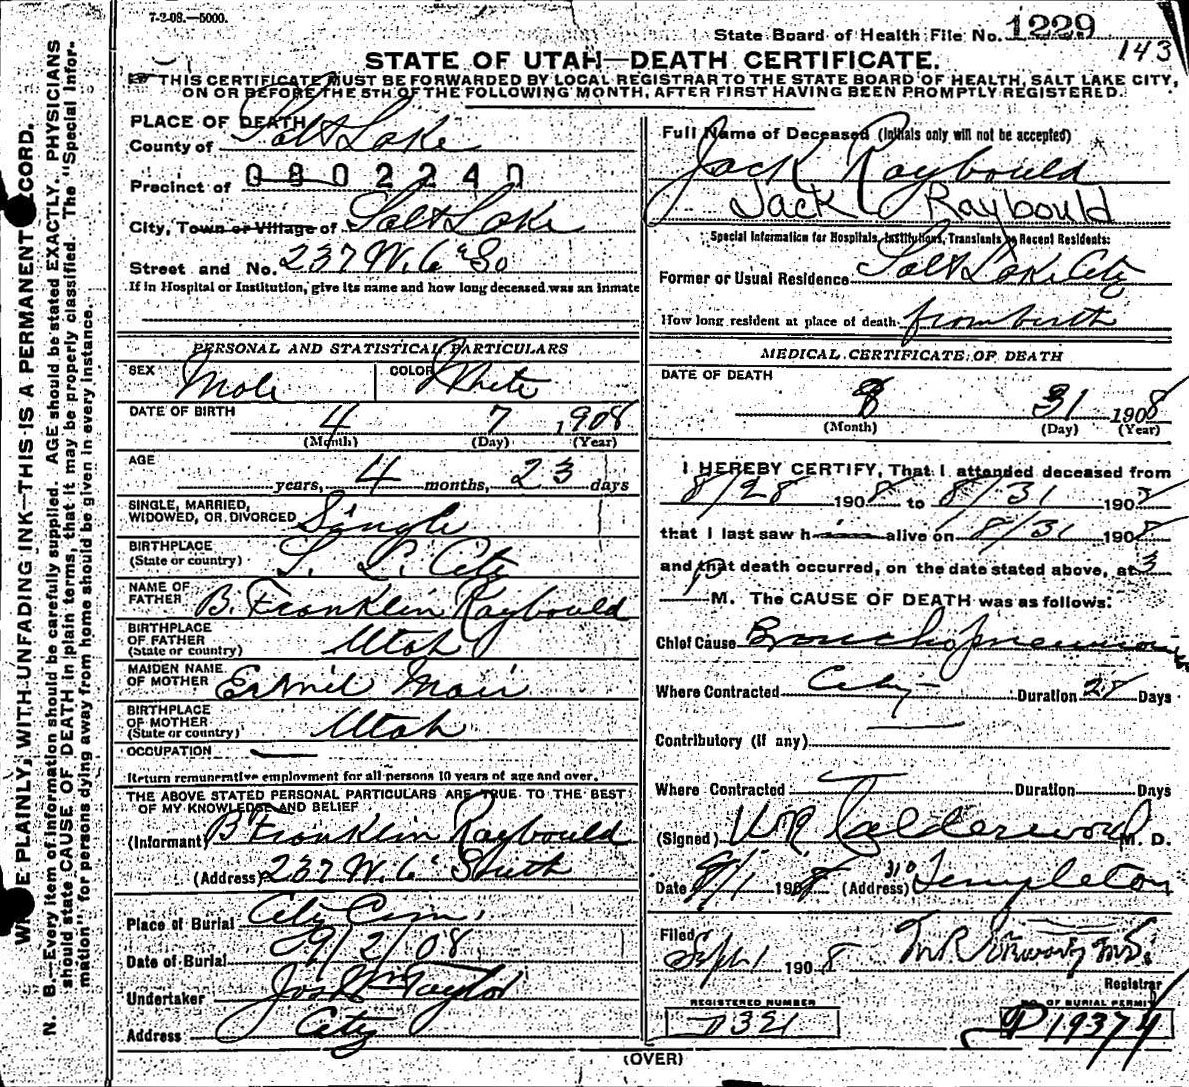 7-2-08.—5000.
State Board of Health File No. 1229
143
STATE OF UTAH—DEATH CERTIFICATE.
THIS CERTIFICATE MUST BE FORWARDED BY LOCAL REGISTRAR TO THE STATE BOARD OF HEALTH, SALT LAKE CITY,
ON OR BEFORE THE 5TH OF THE FOLLOWING MONTH, AFTER FIRST HAVING BEEN PROMPTLY REGISTERED.
PLACE OF DEATH
County of Salt Lake
Precinct of 0802240
City, Town or Village of Salt Lake
Street and No. 237 W. 6" So
If in Hospital or Institution, give its name and how long deceased was an inmate
PERSONAL AND STATISTICAL PARTICULARS
SEX Male COLOR White
DATE OF BIRTH 4 7 1908
(Month) (Day) (Year)
AGE years, 4 months, 23 days
SINGLE, MARRIED,
WIDOWED, OR DIVORCED Single
BIRTHPLACE
(State or country) S. L. City
NAME OF
FATHER B. Franklin Raybould
BIRTHPLACE
OF FATHER
(State or country) Utah
MAIDEN NAME
OF MOTHER Mair
BIRTHPLACE
OF MOTHER
(State or country) Utah
OCCUPATION —
Return remunerative employment for all persons 10 years of age and over.
THE ABOVE STATED PERSONAL PARTICULARS ARE TRUE TO THE BEST
OF MY KNOWLEDGE AND BELIEF
(Informant) B Franklin Raybould
(Address) 237 W. 6' South
Place of Burial City Cem.
Date of Burial 9/2/08
Undertaker Jos Wm Taylor
Address City
Full Name of Deceased (Initials only will not be accepted)
Jack Raybould
Jack Raybould
Special Information for Hospitals, Institutions, Transients or Recent Residents:
Former or Usual Residence Salt Lake City
How long resident at place of death from birth
MEDICAL CERTIFICATE OF DEATH
DATE OF DEATH
8 31 1908
(Month) (Day) (Year)
I HEREBY CERTIFY, That I attended deceased from
8/28 1908 to 8/31 1908
that I last saw him alive on 8/31 1908
and that death occurred, on the date stated above, at 3
P M. The CAUSE OF DEATH was as follows:
Chief Cause Bronchopneumonia
Where Contracted City Duration 28 Days
Contributory (if any)
Where Contracted Duration Days
(Signed) Calderwood M. D.
Date 9/1 1908 (Address) 310 Templeton
Filed Sept 1 1908
Registrar
REGISTERED NUMBER NO. OF BURIAL PERMIT
D321 19374
(OVER)
WRITE PLAINLY, WITH UNFADING INK—THIS IS A PERMANENT RECORD.
N. B.—Every item of information should be carefully supplied. AGE should be stated EXACTLY. PHYSICIANS
should state CAUSE OF DEATH in plain terms, that it may be properly classified. The "Special Infor-
mation" for persons dying away from home should be given in every instance.